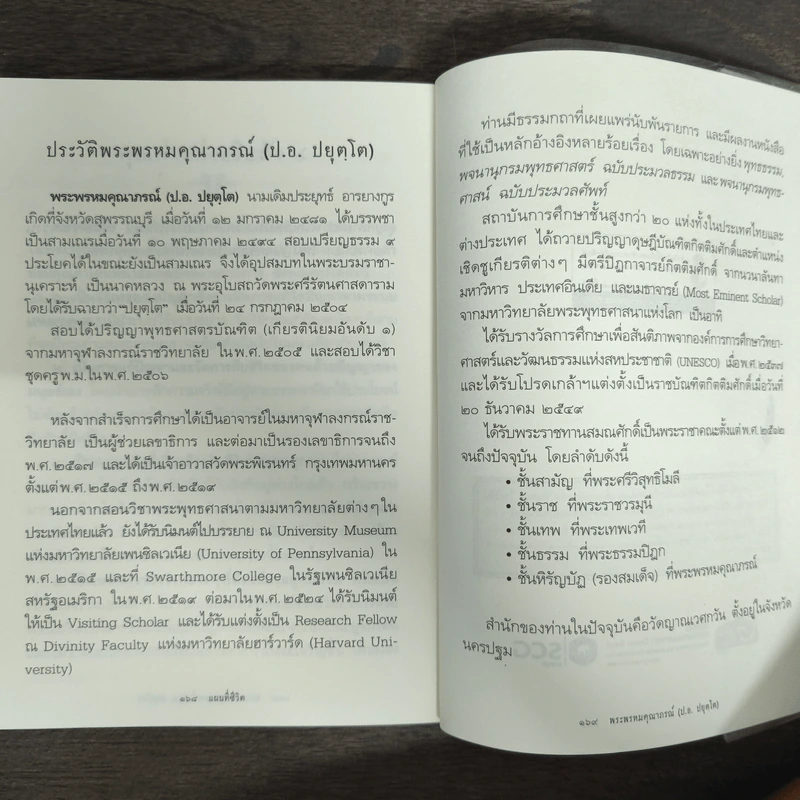 ประวัติพระพรหมคุณาภรณ์ (ป.อ. ปยุตฺโต)
พระพรหมคุณาภรณ์ (ป.อ. ปยุตฺโต) นามเดิมประยุทธ์ อารยางกูร
เกิดที่จังหวัดสุพรรณบุรี เมื่อวันที่ ๑๒ มกราคม ๒๔๘๑ ได้บรรพชา
เป็นสามเณรเมื่อวันที่ ๑๐ พฤษภาคม ๒๔๙๔ สอบเปรียญธรรม ๙
ประโยคได้ในขณะยังเป็นสามเณร จึงได้อุปสมบทในพระบรมราชา-
นุเคราะห์ เป็นนาคหลวง ณ พระอุโบสถวัดพระศรีรัตนศาสดาราม
โดยได้รับฉายาว่า “ปยุตฺโต” เมื่อวันที่ ๒๔ กรกฎาคม ๒๕๐๔
สอบได้ปริญญาพุทธศาสตรบัณฑิต (เกียรตินิยมอันดับ ๑)
จากมหาจุฬาลงกรณ์ราชวิทยาลัย ใน พ.ศ. ๒๕๐๕ และสอบได้วิชา
ชุดครู พ.ม. ใน พ.ศ. ๒๕๐๖
หลังจากสำเร็จการศึกษาได้เป็นอาจารย์ในมหาจุฬาลงกรณ์ราช-
วิทยาลัย เป็นผู้ช่วยเลขาธิการ และต่อมาเป็นรองเลขาธิการจนถึง
พ.ศ. ๒๕๑๗ และได้เป็นเจ้าอาวาสวัดพระพิเรนทร์ กรุงเทพมหานคร
ตั้งแต่ พ.ศ. ๒๕๑๕ ถึง พ.ศ. ๒๕๑๙
นอกจากสอนวิชาพระพุทธศาสนาตามมหาวิทยาลัยต่างๆ ใน
ประเทศไทยแล้ว ยังได้รับนิมนต์ไปบรรยาย ณ University Museum
แห่งมหาวิทยาลัยเพนซิลเวเนีย (University of Pennsylvania) ใน
พ.ศ. ๒๕๑๕ และที่ Swarthmore College ในรัฐเพนซิลเวเนีย
สหรัฐอเมริกา ใน พ.ศ. ๒๕๑๙ ต่อมาใน พ.ศ. ๒๕๒๔ ได้รับนิมนต์
ให้เป็น Visiting Scholar และได้รับแต่งตั้งเป็น Research Fellow
ณ Divinity Faculty แห่งมหาวิทยาลัยฮาร์วาร์ด (Harvard Uni-
versity)
๑๖๘ แผนที่ชีวิต
ท่านมีธรรมกถาที่เผยแพร่นับพันรายการ และมีผลงานหนังสือ
ที่ใช้เป็นหลักอ้างอิงหลายร้อยเรื่อง โดยเฉพาะอย่างยิ่ง พุทธธรรม,
พจนานุกรมพุทธศาสตร์ ฉบับประมวลธรรม และ พจนานุกรมพุทธ-
ศาสน์ ฉบับประมวลศัพท์
สถาบันการศึกษาชั้นสูงกว่า ๒๐ แห่งทั้งในประเทศไทยและ
ต่างประเทศ ได้ถวายปริญญาดุษฎีบัณฑิตกิตติมศักดิ์และตำแหน่ง
เชิดชูเกียรติต่างๆ มีตรีปิฎกาจารย์กิตติมศักดิ์ จากนวนาลันทา
มหาวิหาร ประเทศอินเดีย และเมธาจารย์ (Most Eminent Scholar)
จากมหาวิทยาลัยพระพุทธศาสนาแห่งโลก เป็นอาทิ
ได้รับรางวัลการศึกษาเพื่อสันติภาพจากองค์การการศึกษาวิทยา-
ศาสตร์และวัฒนธรรมแห่งสหประชาชาติ (UNESCO) เมื่อ พ.ศ. ๒๕๓๗
และได้รับโปรดเกล้าฯ แต่งตั้งเป็นราชบัณฑิตกิตติมศักดิ์เมื่อวันที่
๒๐ ธันวาคม ๒๕๔๙
ได้รับพระราชทานสมณศักดิ์เป็นพระราชาคณะตั้งแต่ พ.ศ. ๒๕๑๒
จนถึงปัจจุบัน โดยลำดับดังนี้
• ชั้นสามัญ ที่พระศรีวิสุทธิโมลี
• ชั้นราช ที่พระราชวรมุนี
• ชั้นเทพ ที่พระเทพเวที
• ชั้นธรรม ที่พระธรรมปิฎก
• ชั้นหิรัญบัฏ (รองสมเด็จ) ที่พระพรหมคุณาภรณ์
สำนักของท่านในปัจจุบันคือวัดญาณเวศกวัน ตั้งอยู่ในจังหวัด
นครปฐม
๑๖๙ พระพรหมคุณาภรณ์ (ป.อ. ปยุตฺโต)